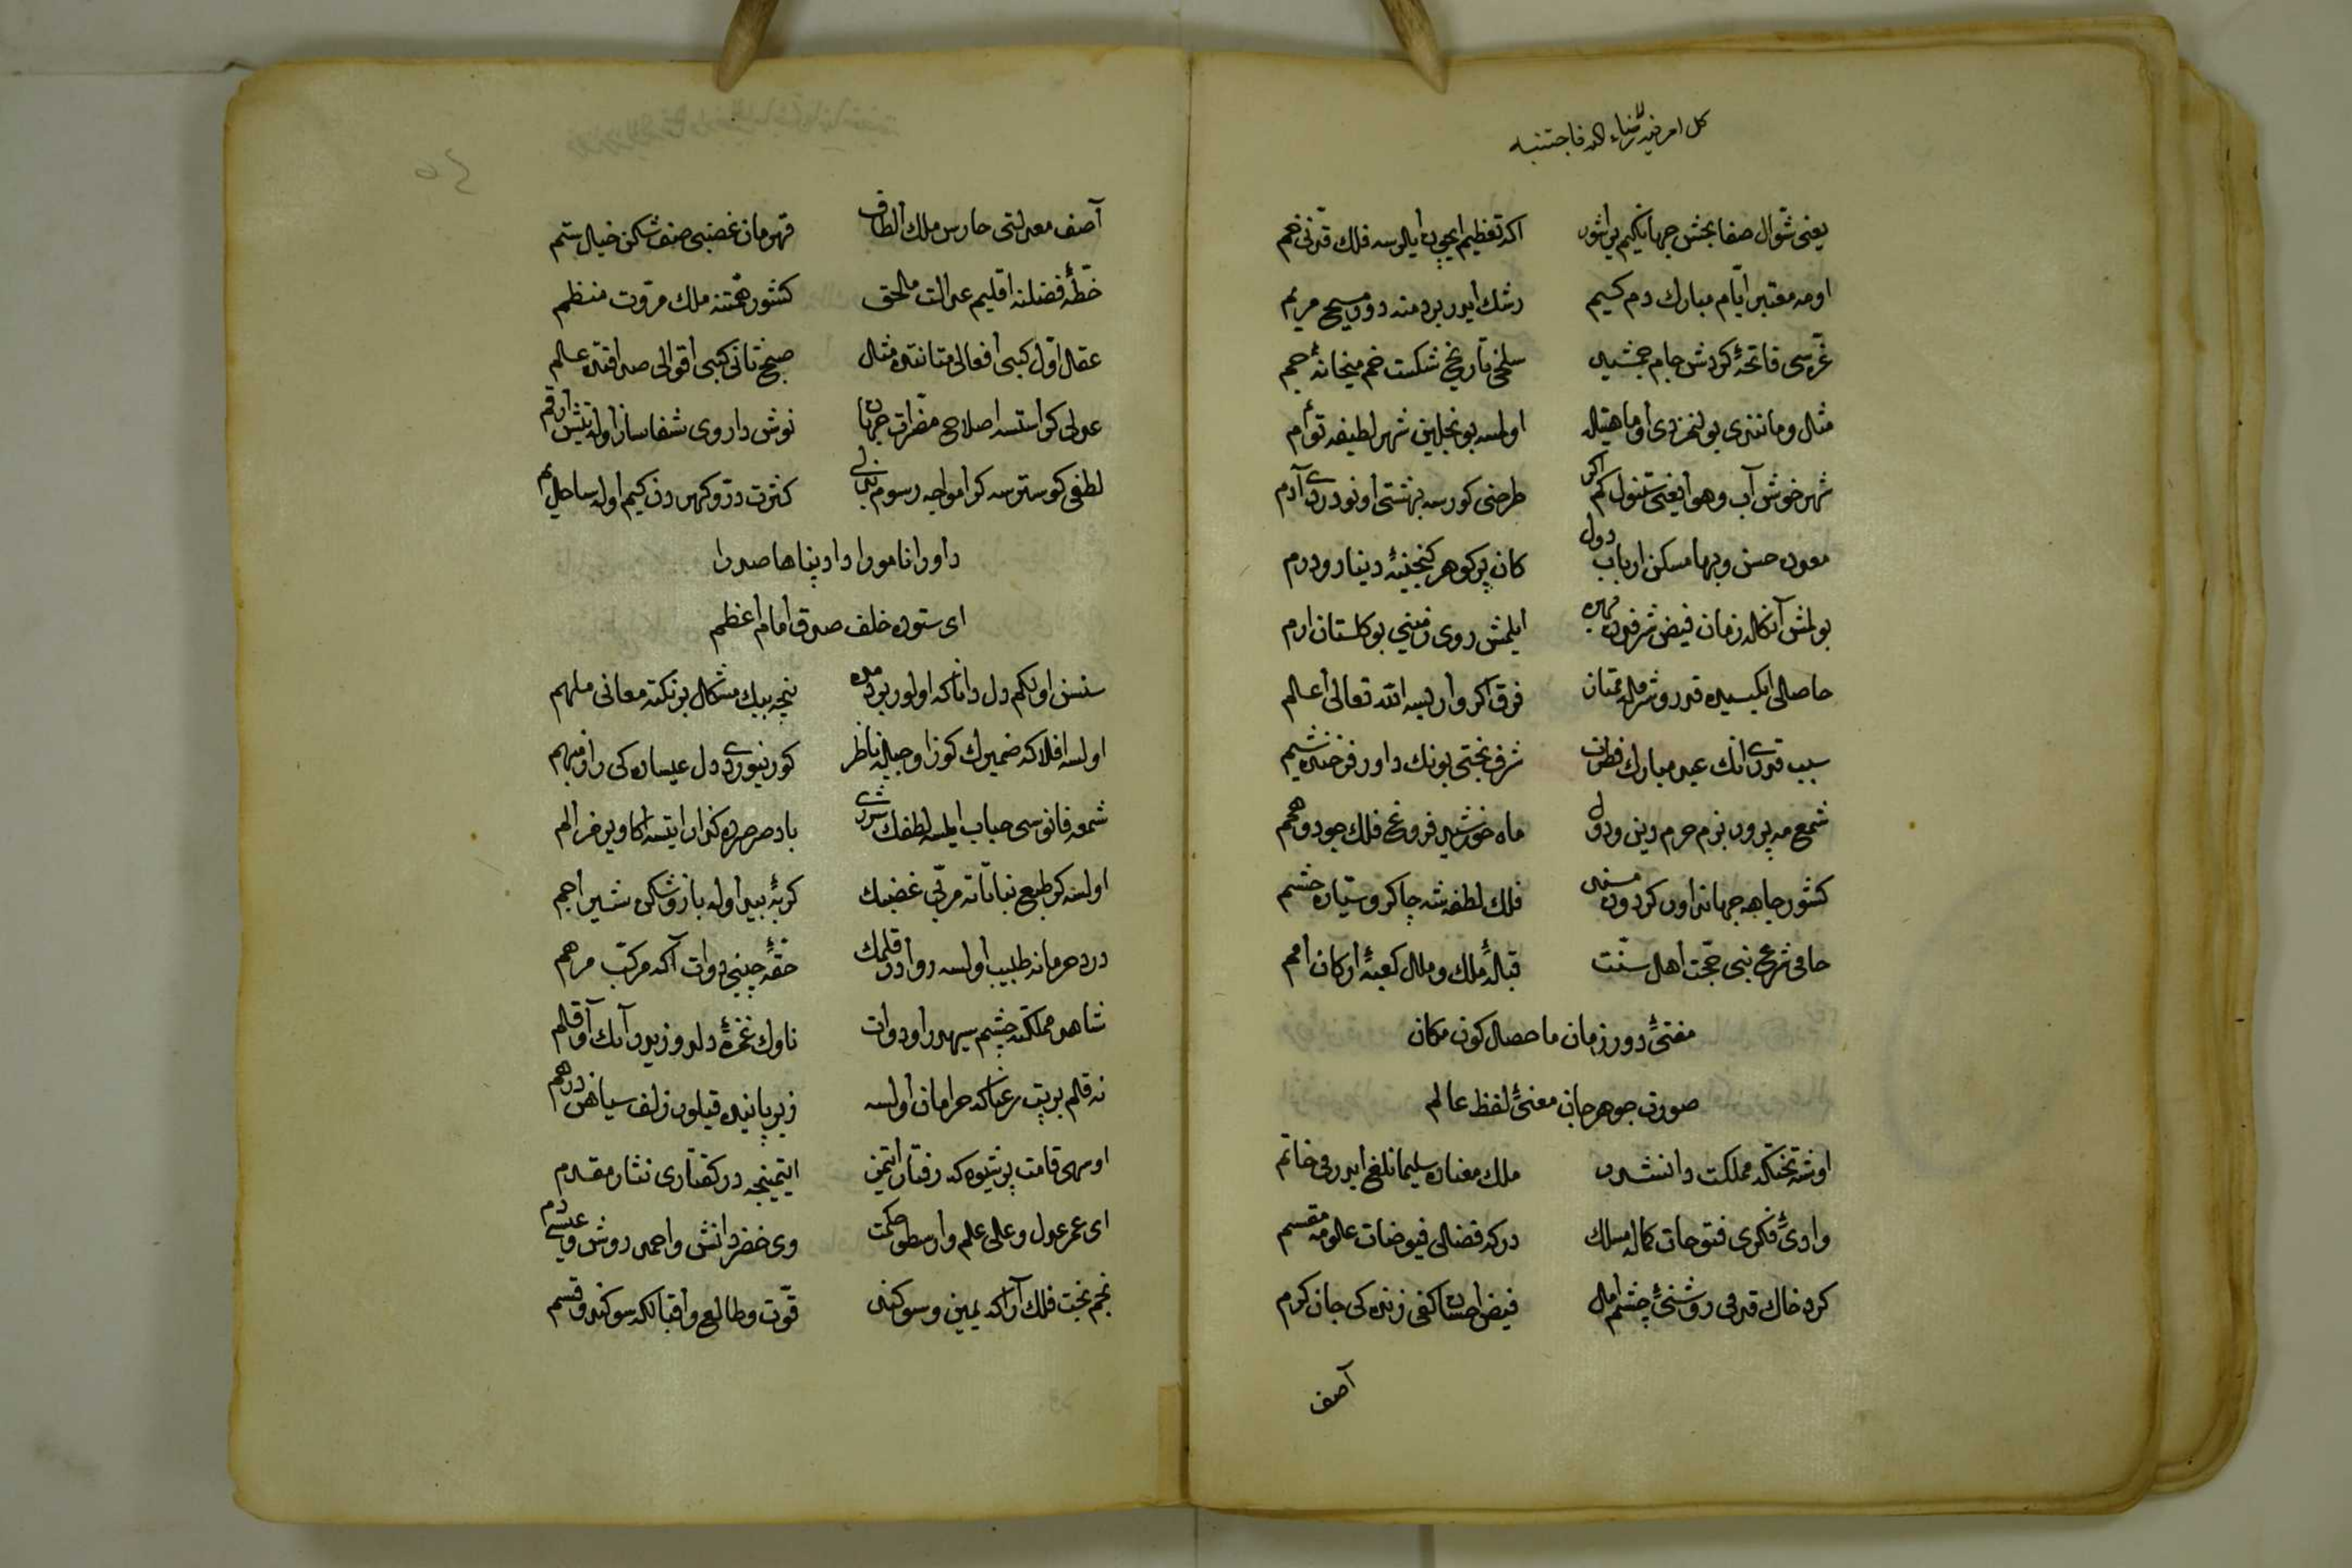 یعنی شوّال صفا بخش جهانكیم یر اشور اكه تعظیم ایچون ایلر سه فلك قدّنی خم
اومه معتبر ایّام مبارك دم كیم رشك ایدر بردمنه دودمسیح مریم
غرّه سی فاتحۀ كردش جام جمشید سلخی تاریخ شكست خم میخانۀ جم
مثال و مانندی بولنمزدی او ماهیتله اولمسه بونجلین شهر لطیفه توأم
شهر خوش آب و هوا یعنی ستنبول كم اكر طرحنی كورسه بهشتی اونودردی آدم
معدن حسن و بها مسكن ارباب دول كان پر كوهر كنجینۀ دینار و درم
بولمش آنكله زمان فیض شرفدن بهره ایلمش روی زمینی بو كلستان ارم
حاصلی ایكیسیده قدر و شرفله ممتاز فرق اكر وار ایسه الله تعالی اعلم
سبب قدری انك عید مبارك فطرت شرف بختی بونك داور فرخنده شیم
شمع مه پرور بزم حرم دین و دول ماه خورشید فروغ فلك جود و همم
كشور جاهه جهانداور كردون مسند فلك لطفه شه چاكر و سیّاره حشم
حامی شرع نبی حجّت اهل سنّت قبلۀ ملك و ملل كعبۀ اركان امم
مفتیٔ دور زمان ماحصل كون مكان
صورت جوهر جان معنیٔ لفظ عالم
اوشه تختكه مملكت دانشدر ملك معناده سلیمانلغی ایدر می خاتم
وادیٔ فكری فتوحات كماله مسلك دركه فضلی فیوضات علومه مقسم
كرد خاك قدمی روشنیٔ چشم امل فیض احسان كفی زنده كی جان كرم
آصف
آصف معدلتی حارس ملك الطاف قهرمان غضبی صف شكن خیل ستم
خطّۀ فضلنه اقلیم عدالت ملحق كشور همّتنه ملك مروّت منظم
عقل اوّل كبی افعالی متانتده مثل صبح ثانی كبی اقوالی صداقتده علم
عدلی كر استسه اصلاح مضرّات جهان نوش داروی شفاساز اوله نیش ارقم
لطفی كوسترسه كر امواجه رسوم بذلی كثرت درّ و كهردن كیم اوله ساحل یم
داورا نامورا دادپناها صدرا
ای ستوده خلف صدق امام اعظم
سنسن اولكم دل داناكه اولور بودمده نیجه بیك مشكل بر نكته معانی ملهم
اولسه افلاكه ضمیرك كوزاوجیله ناظر كورنیوردی دل عیساده كی راز مبهم
شمعه فانوسی حباب ایلسه لطفك شررى باد صرصرده كذار ایتسه اكا ویرمز الم
اولسه كر طبع نباتاته مربّی غضبك كربۀ بید اوله بازو شكن شیر اجم
درد حرمانه طبیب اولسه روادر قلمك حقّۀ چینی دوات آكه مركّب مرهم
شاهد مملكته چشم سیهدر او دوات ناوك غمزۀ دلدوزیدر آنك او قلم
نه قلم بر بت رعناكه خرامان اولسه زیر پاینده قیلور زلف سیاهن درهم
اوسهی قامت پر شیوه كه رفتار ایتمز ایتمینجه درّ كفتاری نثار مقدم
ای عمر عدل و علی علم و ارسطو حكمت وی خضر دانش و احمد روش و عیسی دم
نجم بخت فلك آراكه یمین و سوكند قوّت و طالع و اقبالكه سوكند و قسم